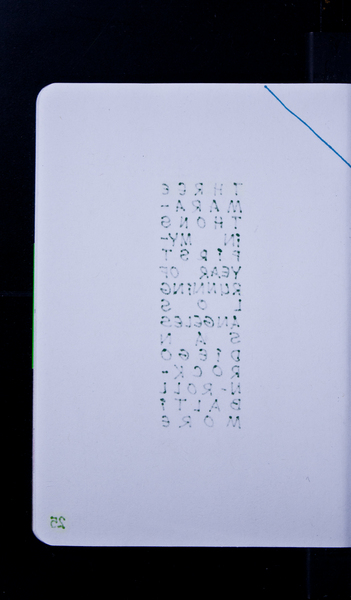 THREE
MARA-
THONS
IN MY
FIRST
YEAR OF
RUNNING
LOS
ANGELES
SAN
DIEGO
ROCK-
N-ROLL
BALTI
MORE
25